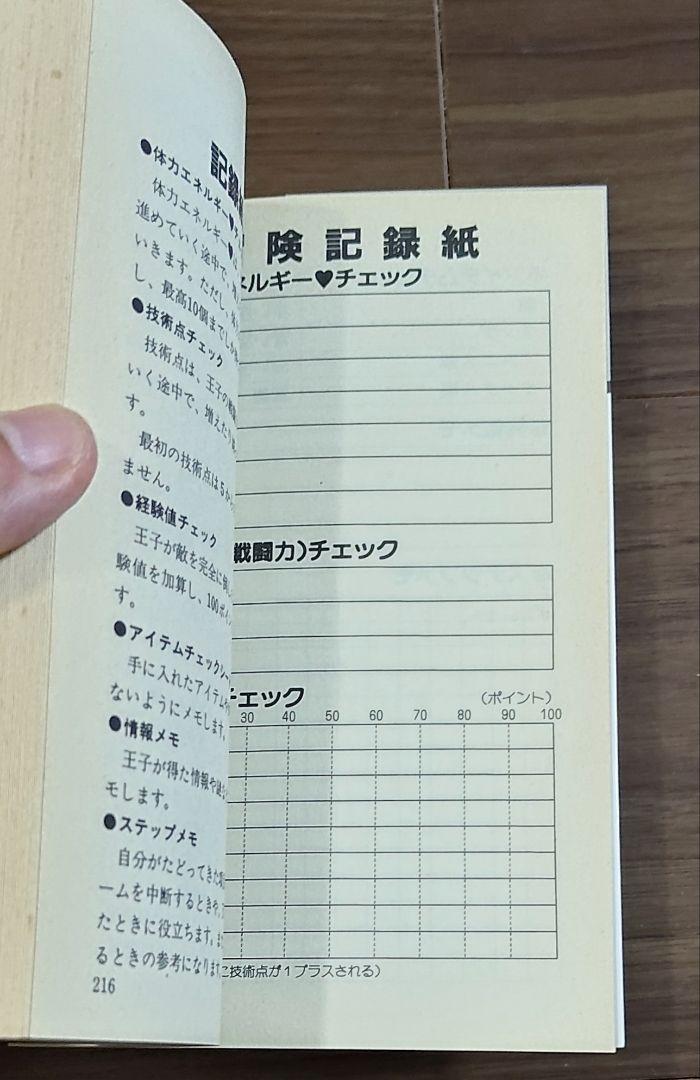 記録
●体力エネルギー♥
体力エネルギー♥
進めていく途中で、
いきます。ただし、
し、最高10個までし
●技術点チェック
技術点は、王子の戦
いく途中で、増えた
す。
最初の技術点は5か
ません。
●経験値チェック
王子が敵を完全に倒
験値を加算し、100ポイ
す。
●アイテムチェックシー
手に入れたアイテムや
ないようにメモします。
●情報メモ
王子が得た情報や
モします。
●ステップメモ
自分がたどってきた
ームを中断するときや、
たときに役立ちます。ま
るときの参考になります
216
険記録紙
ネルギー♥チェック
戦闘力)チェック
チェック
(ポイント)
30 40 50 60 70 80 90 100
技術点が1プラスされる)